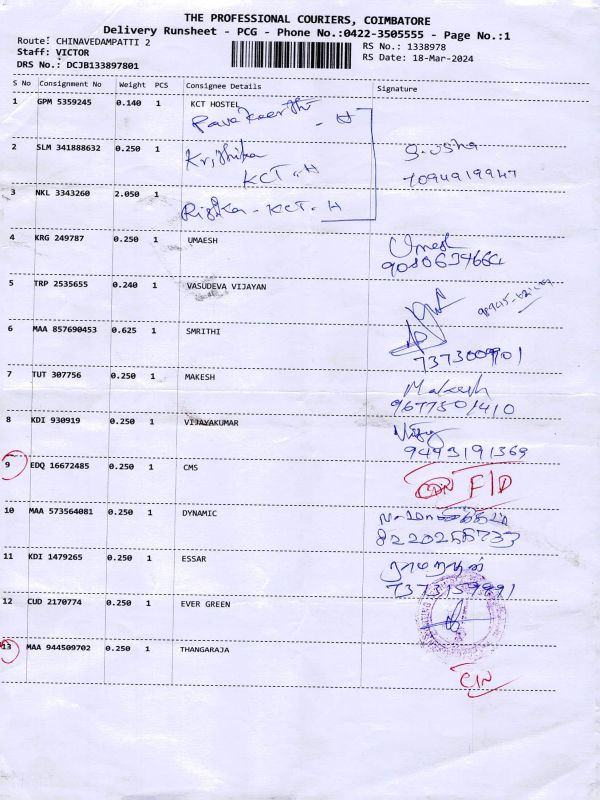 THE PROFESSIONAL COURIERS, COIMBATORE
Delivery Runsheet - PCG - Phone No.:0422-3505555 - Page No.:1
Route: CHINAVEDAMPATTI 2
RS No.: 1338978
Staff: VICTOR
RS Date: 18-Mar-2024
DRS No.: DCJB133897801
S No Consignment No Weight PCS Consignee Details Signature
1 GPM 5359245 0.140 1 KCT HOSTEL
- H
2 SLM 341888632 0.250 1 Krithika
KCT - H
S. Usha
7094919947
3 NKL 3343260 2.050 1
Rigika - KCT - H
4 KRG 249787 0.250 1 UMAESH Umesh
9080634664
5 TRP 2535655 0.240 1 VASUDEVA VIJAYAN
6 MAA 857690453 0.625 1 SMRITHI
7373009901
7 TUT 307756 0.250 1 MAKESH Makesh
9677501410
8 KDI 930919 0.250 1 VIJAYAKUMAR Vijay
9493191369
9 EDQ 16672485 0.250 1 CMS F/D
10 MAA 573564081 0.250 1 DYNAMIC
8220266733
11 KDI 1479265 0.250 1 ESSAR
7373159991
12 CUD 2170774 0.250 1 EVER GREEN
13 MAA 944509702 0.250 1 THANGARAJA
C/N